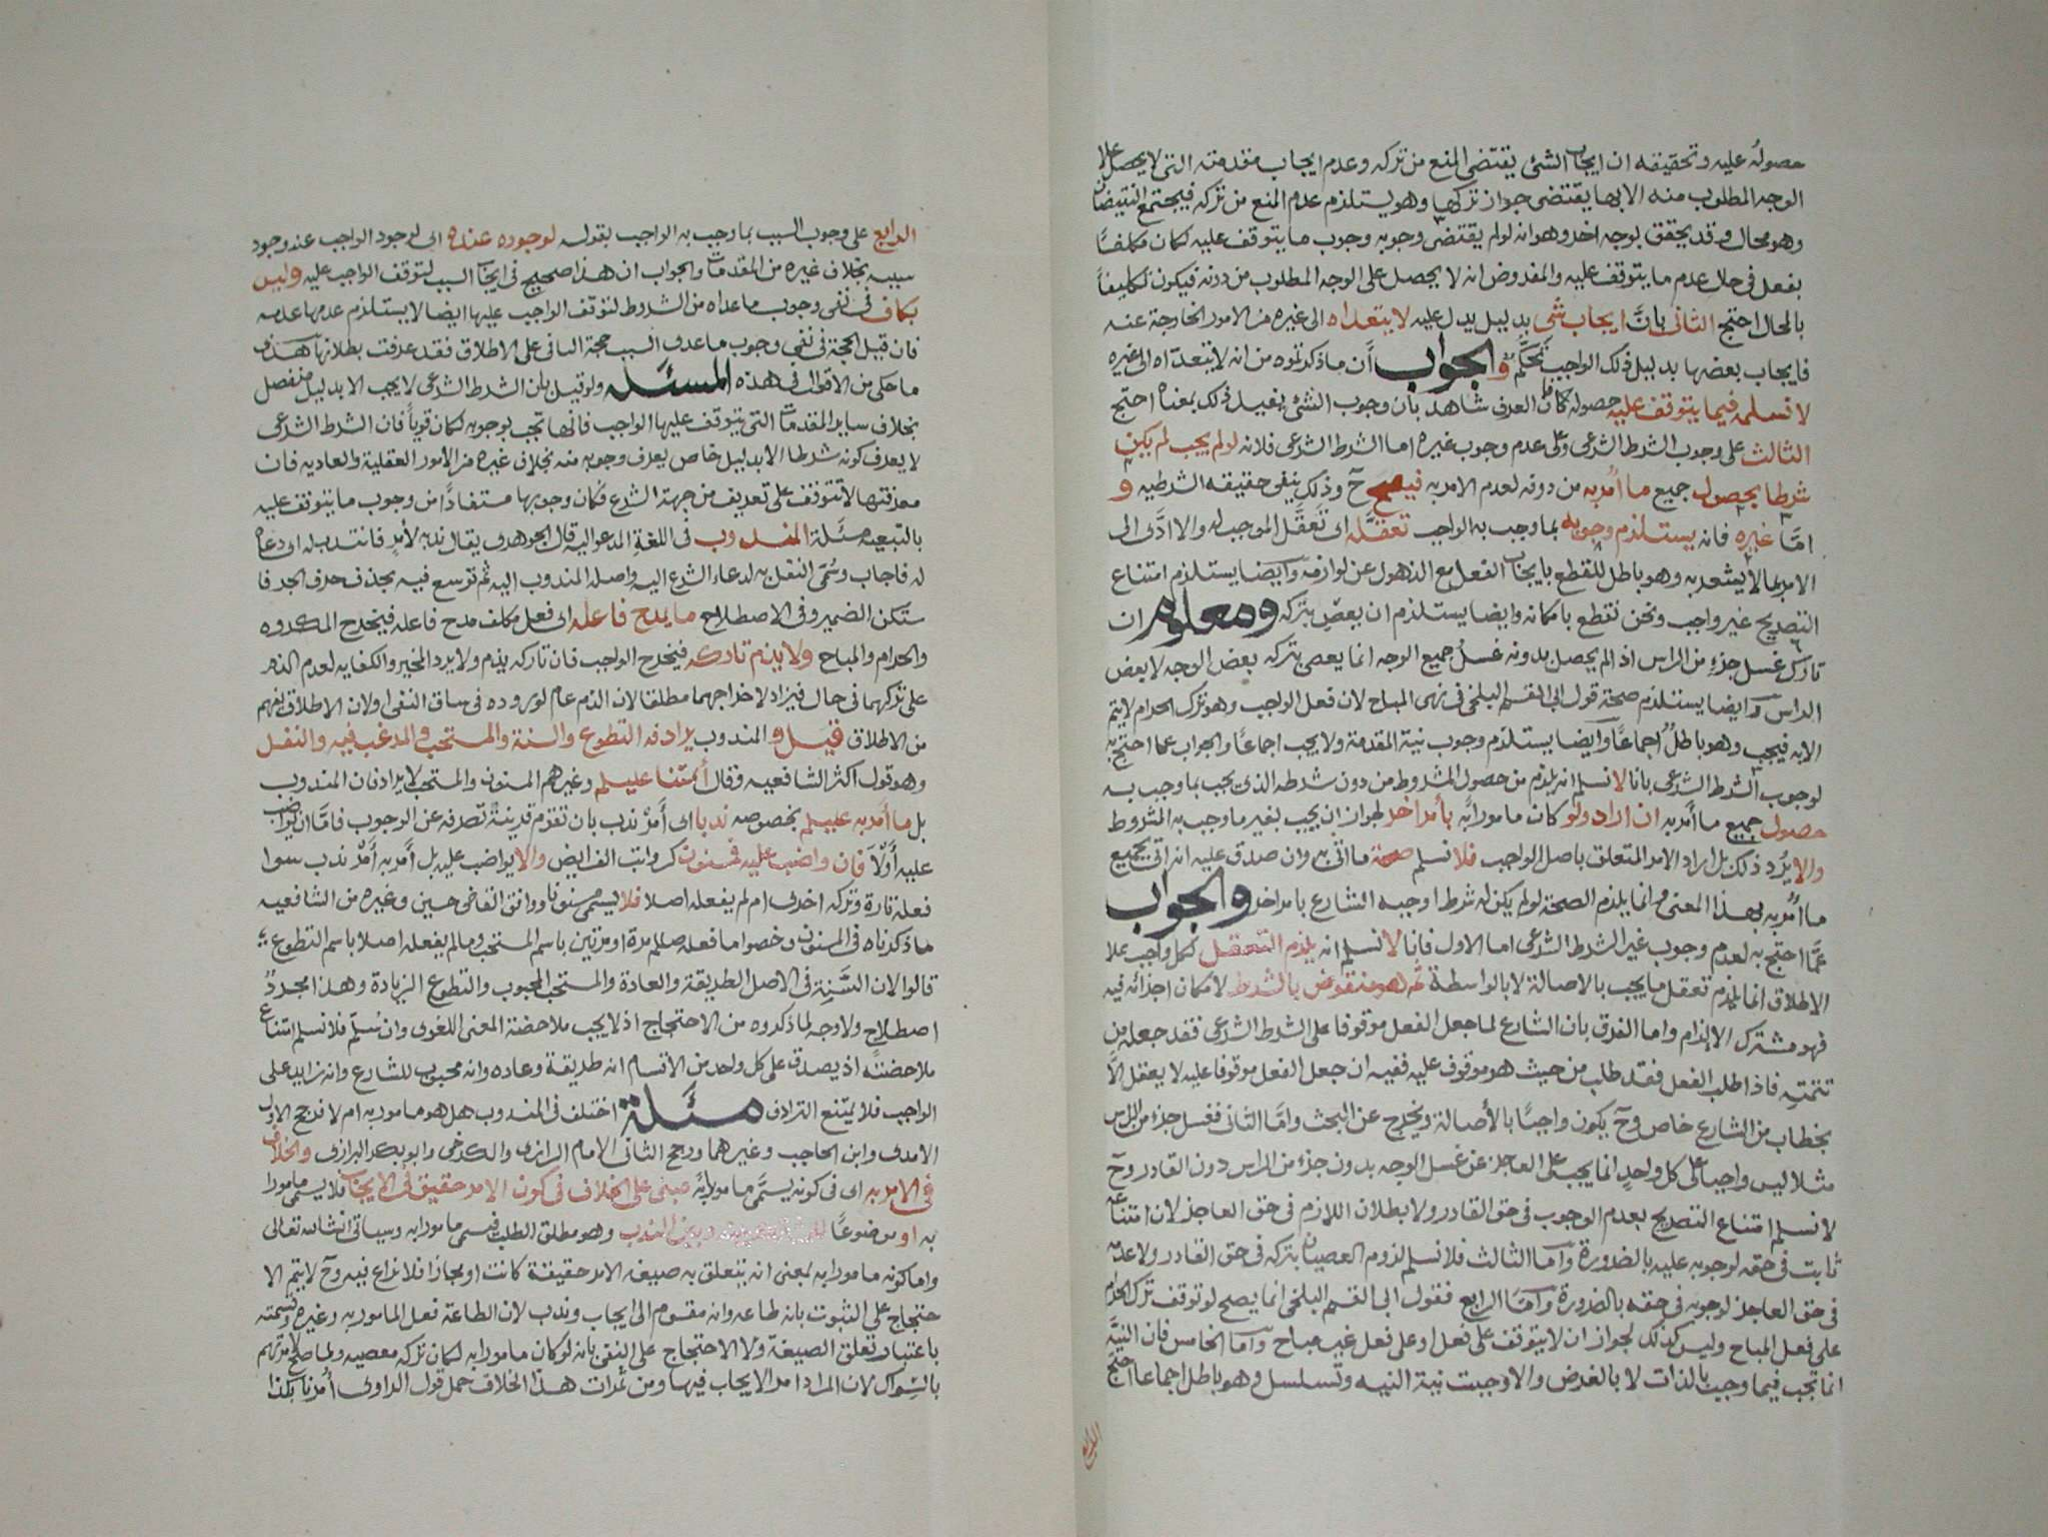 حصولُه عليه وتحقيقه ان ايجاب الشئ يقتضى المنع من تركه وعدم ايجاب مقدمته التى لا يحصل علا
الوجه المطلوب منه الا بها يقتضى جواز تركها وهو يستلزم عدم المنع من تركه فيجتمع النقيضان
وهو محال وقد يحقق بوجه اخر وهو انه لو لم يقتضى وجوبه وجوب ما يتوقف عليه لكان مكلفًا
بفعل فى حال عدم ما يتوقف عليه والمفروض انه لا يحصل على الوجه المطلوب من دونه فيكون تكليفاً
بالمحال احتج الثانى بانَّ ايجاب شئ بدليل يدل عليه لا يتعداه الى غيره من الامور الخارجة عنه
فايجاب بعضها بدليل ذلك الواجب تحكّم والجواب أن ما ذكرتموه من انه لا يتعداه الى غيره
لا نسلمه فيما يتوقف عليه حصوله فان العرف شاهد بأن وجوب الشئ يفيد ذلك بمعناه احتج
الثالث على وجوب الشرط الشرعى وعلى عدم وجوب غيره اما الشرط الشرعى فلانه لو لم يجب لم يكن
شرطا بحصول جميع ما اُمر به من دونه لعدم الامر به فيصح حَ وذلك ينفى حقيقه الشرطيه و
امّا غيره فانه يستلزم وجوبه بما وجب به الواجب تعقّله اى تَعقُّل الموجب له والا ادَّى الى
الامر بما لا يشعر به وهو باطل للقطع بايجاب الفعل مع الذهول عن لوازمه وايضا يستلزم امتناع
التصريح غير واجب ونحن نقطع بامكانه وايضا يستلزم ان يعصى بتركه ومعلوم ان
تارك غسل جزء من الراس اذ لم يحصل بدونه غسلُ جميع الوجه انما يعصى بتركه بعض الوجه لا بعض
الراس وايضا يستلزم صحة قول ابى القسم البلخى فى نهى المباح لان فعل الواجب وهو ترك الحرام لا يتم
الا به فيجب وهو باطلٌ اجماعًا وايضا يستلزم وجوب نية المقدمة ولا يجب اجماعًا والجواب عما احتج به
لوجوب الشرط الشرعى بانا لا نسلم انه يلزم من حصول المشروط من دون شرطه الذى يجب بما وجب به
حصول جميع ما اُمر به ان اراد ولو كان مامورا به بأمر اخر لجواز ان يجب بغير ما وجب به المشروط
والا يرُد ذلك بل اراد الامر المتعلق باصل الواجب فلا نسلم صحة ما اتى به وان صدق عليه انه اتى بجميع
ما اُمر به بهذا المعنى وانما يلزم الصحة لو لم يكن له شرط اوجبه الشارع بامر اخر والجواب
عمّا احتج به لعدم وجوب غير الشرط الشرعى اما الاول فانا لا نسلم انه يلزم التعقل لكل واجب علا
الاطلاق انما يلزم تعقل ما يجب بالاصالة لا بالواسطة ثم هو منقوض بالشرط لامكان اجرائه فيه
فهو مشترك الالزام واما الفرق بان الشارع لما جعل الفعل موقوفا على الشرط الشرعى فقد جعله من
تتمته فاذا طلب الفعل فقد طلب من حيث هو موقوف عليه ففيه ان جعل الفعل موقوفا عليه لا يعقل الاّ
بخطاب من الشارع خاص وحَ يكون واجبًا بالأصالة ويخرج عن البحث وامّا الثانى فغسل جزء من الراس
مثلا ليس واجبا على كل واحدٍ انما يجب على العاجز عن غسل الوجه بدون جزء من الراس دون القادر وحَ
لا نسلم امتناع التصريح بعدم الوجوب فى حق القادر ولا بطلان اللازم فى حق العاجز لان امتناعه
ثابت فى حقه لوجوبه عليه بالضرورة واما الثالث فلا نسلم لزوم العصيان بتركه فى حق القادر ولا عدمه
فى حق العاجز لوجوبه فى حقه بالضرورة وامّا الرابع فقول ابى القسم البلخى انما يصح لو توقف ترك الحرام
على فعل المباح وليس كذلك لجواز ان لا يتوقف على فعل او على فعل غير مباح وامّا الخامس فان النيَّة
انما تجب فيما وجب بالذات لا بالغرض والا وجبت نية النيه وتسلسل وهو باطل اجماعا احتج
الرابع
الرابع على وجوب السبب بما وجب به الواجب بقوله لوجوده عنده اى لوجود الواجب عند وجود
سببه بخلاف غيره من المقدمات والجواب ان هذا صحيح فى ايجاب السبب لتوقف الواجب عليه وليس
بكاف فى نفى وجوب ما عداه من الشروط لتوقّف الواجب عليها ايضا لاستلزام عدمها عدمه
فان قيل الحجة فى نفى وجوب ما عدى السبب حجة النافى على الاطلاق فقد عرفت بطلانها هذا
ما حكى من الاقوال فى هذه المسئله ولو قيل بان الشرط الشرعى لا يجب الا بدليل منفصل
بخلاف ساير المقدمات التى يتوقف عليها الواجب فانها تجب بوجوبه لكان قوياً فان الشرط الشرعى
لا يعرف كونه شرطا الا بدليل خاص يعرف وجوبه منه بخلاف غيره من الأمور العقلية والعاديه فان
معرفتها لا تتوقف على تعريف من جهة الشرع فكان وجوبها مستفادًا من وجوب ما يتوقف عليه
بالتبعيه مسئلة المندوب فى اللغة المدعو اليه قال الجوهرى يقال ندبه لأمرٍ فانتدب له اى دعاه
له فاجاب وسُمّى النفل به لدعاء الشرع اليه واصله المندوب اليه ثم توسع فيه بحذف حرف الجر فا
ستكن الضمير وفى الاصطلاح ما يمدح فاعله اى فعل مكلف مدح فاعله فيخرج المكروه
والحرام والمباح ولا يذم تاركه فيخرج الواجب فان تاركه يذم ولا يرد المخير والكفايه لعدم الذم
على تركهما فى حال فيزاد لاخراجهما مطلقا لان الذم عام لوروده فى ساق النفى او لان الاطلاق يفهم
من الاطلاق قيل و المندوب يرادفه التطوع والسنة والمستحب والمرغب فيه والنفل
وهو قول اكثر الشافعيه وقال أئمتنا عليلم وغيرهم المسنون والمستحب لا يرادفان المندوب
بل ما أمر به عليلم بخصوصه ندبا اى أمرُ ندب بان تقوم قرينةٌ تصرفه عن الوجوب فامّا ان يواضب
عليه أوّلاً فان واضب عليه فمسنون كرواتب الفرايض والا يواضب عليه بل أمر به أمرُ ندب سوا
فعله تارة وتركه اخرى ام لم يفعله اصلا فلا يسمى مسنونا ووافق القاضى حسين وغيره من الشافعيه
ما ذكرناه فى المسنون وخصوا ما فعله صللم مرة او مرتين باسم المستحب وما لم يفعله اصلا باسم التطوع
قالوا لان السَّنة فى الاصل الطريقة والعادة والمستحب المحبوب والتطوع الزيادة وهذا مجردُ
اصطلاح ولا وجه لما ذكروه من الاحتجاج اذ لا يجب ملاحضة المعنى اللغوى وان سُلّم فلا نسلم امتناع
ملاحضته اذ يصدق على كل واحد من الأقسام انه طريقة وعاده وانه محبوب للشارع وانه زايد على
الواجب فلا يمتنع الترادف مسئلة اختلف فى المندوب هل هو مامور به ام لا فرجح الاول
الامدى وابن الحاجب وغيرهما ورجح الثانى الامام الرازى والكرخى وابو بكر الرازى والخلاف
فى الامر به اى فى كونه يسمّى مامورا به مبنى على الخلاف فى كون الامر حقيق فى الايجاب فلا يسمى مامورا
به او موضوعًا وبين الندب وهو مطلق الطلب فيسمى مامورا به وسياتى انشالله تعالى
واما كونه مامورا به بمعنى انه يتعلق به صيغه الامر حقيقة كانت او مجازا فلا نزاع فيه وحَ لا يتم الا
حتجاج على الثبوت بانه طاعه وانه مقسوم الى ايجاب وندب لان الطاعة فعل المامور به وغيره وقسمته
باعتبار تعلق الصيغة ولا الاحتجاج على النفى بانه لو كان مامورا به لكان تركه معصيه ولما صلح لأمرتهم
بالسواك لان المراد امر الايجاب فيها ومن ثمرات هذا الخلاف حمل قول الراوى اُمرنا بكذا